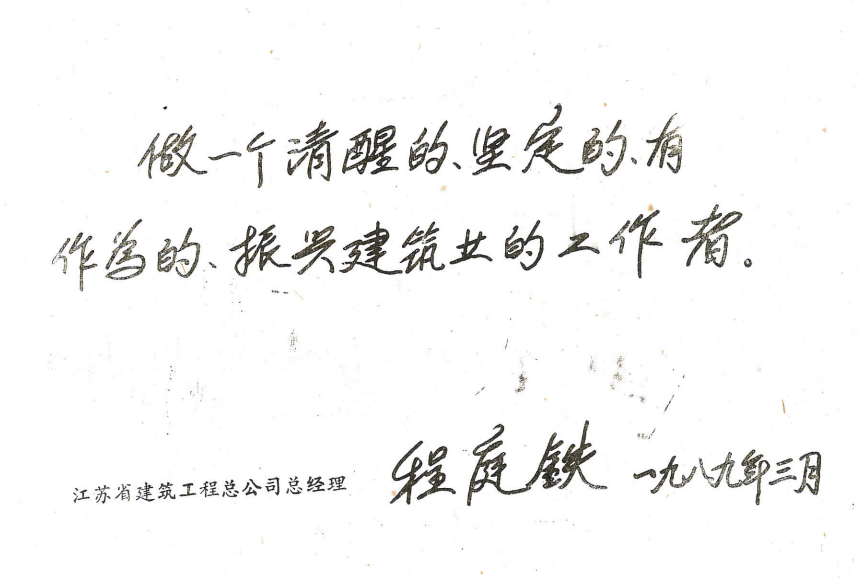 做一个清醒的、坚定的、有
作为的、振兴建筑业的工作者。
江苏省建筑工程总公司总经理 程庭铁 一九八九年三月